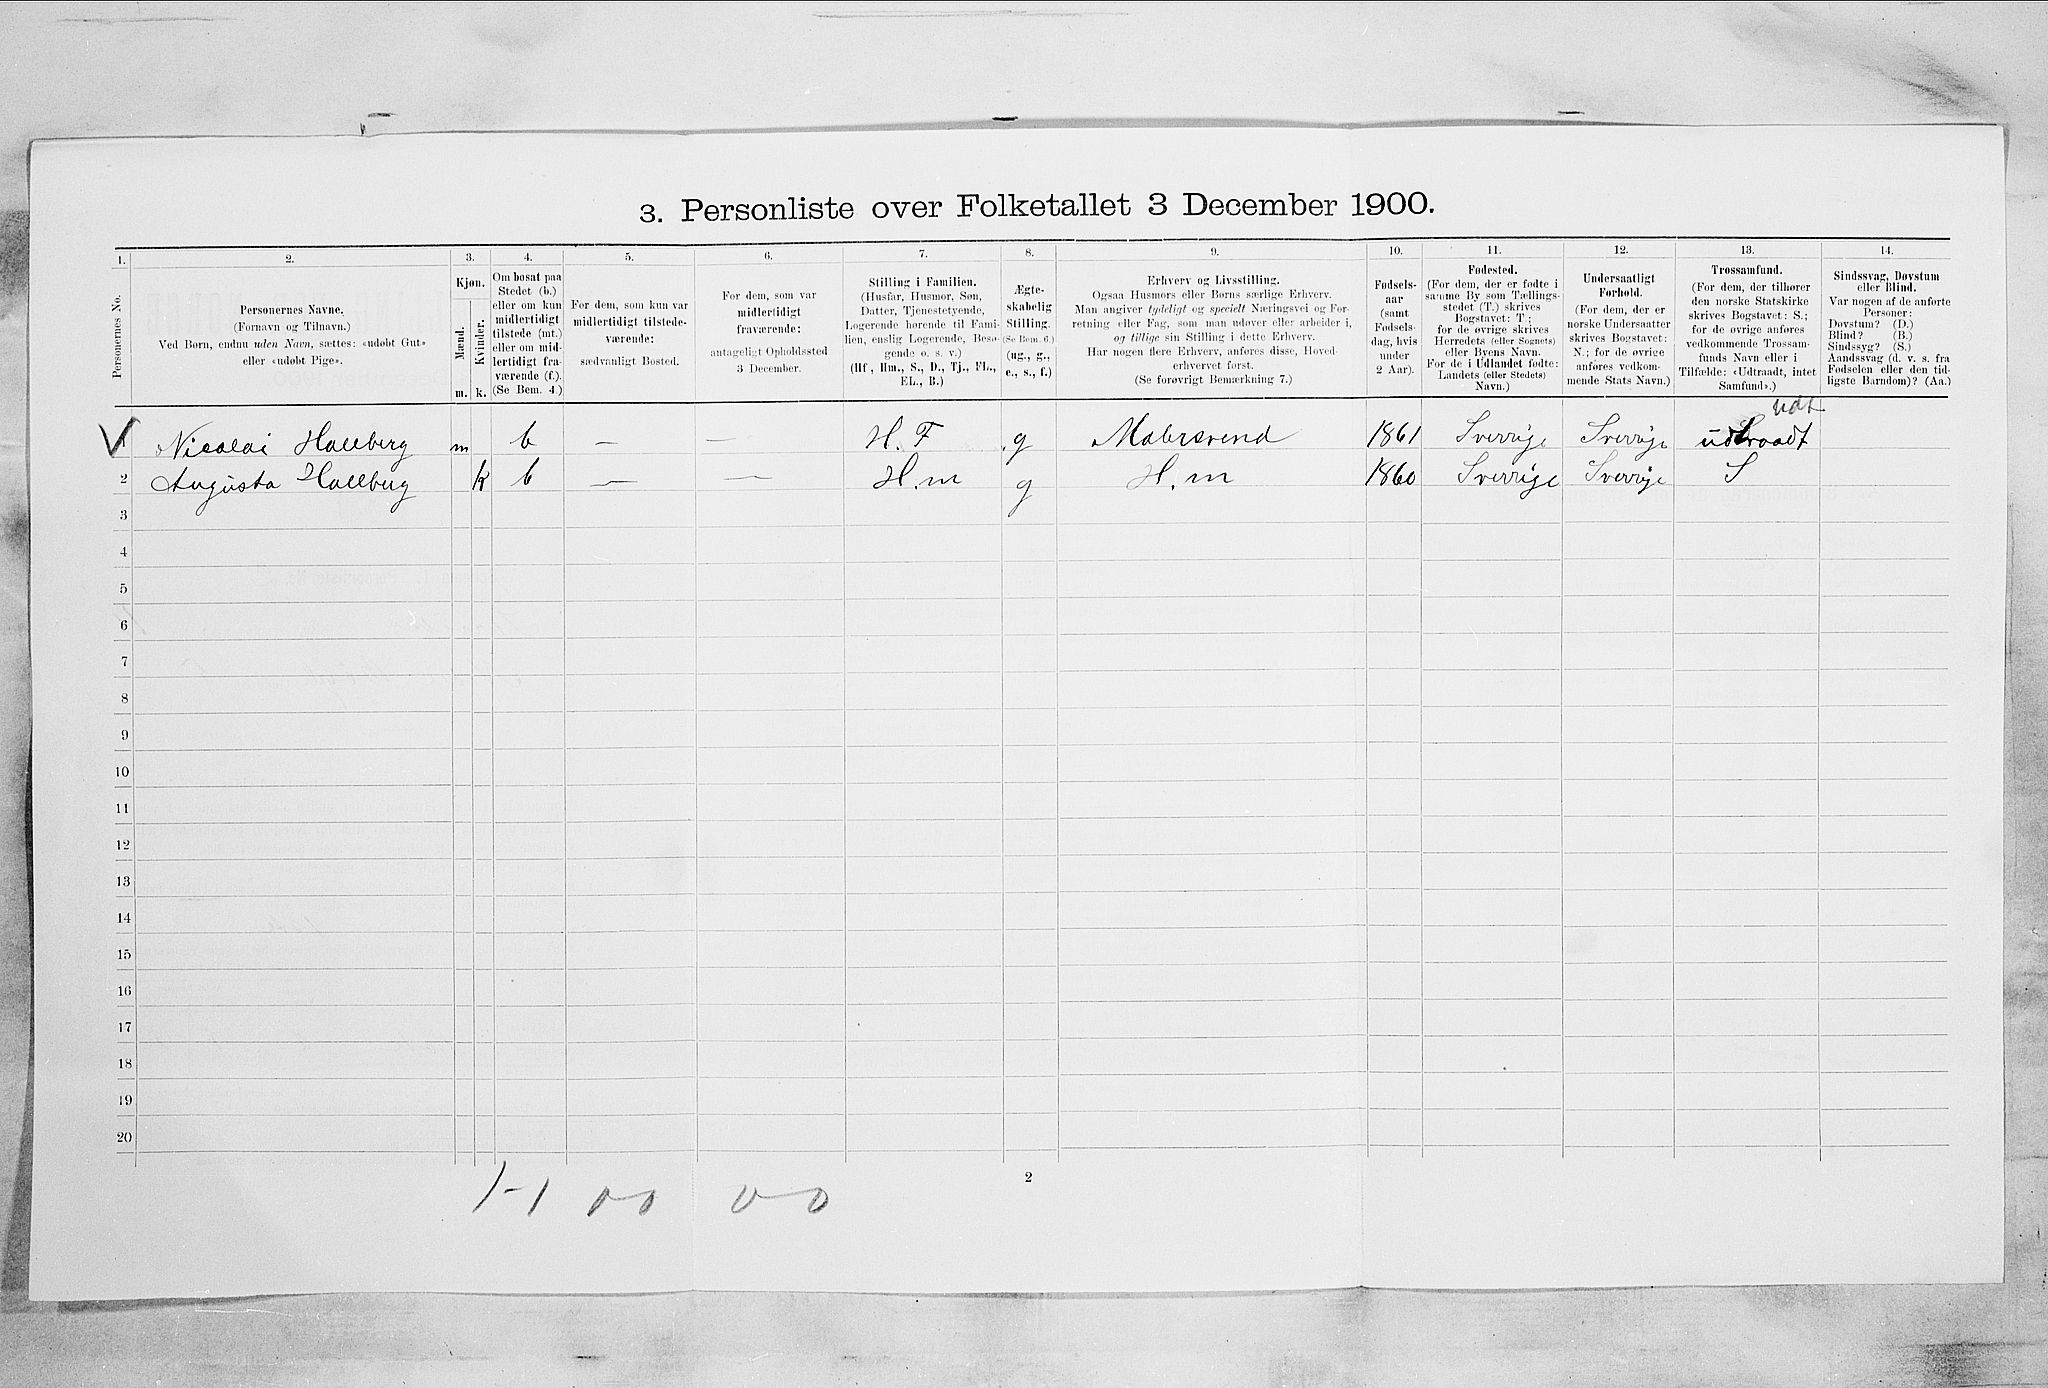 3. Personliste over Folketallet 3 December 1900.
1. 2. 3. 4. 5. 6. 7. 8. 9. 10. 11. 12. 13. 14.
Personernes No.
Personernes Navne.
(Fornavn og Tilnavn.)
Ved Børn, endnu uden Navn, sættes: «udøbt Gut»
eller «udøbt Pige».
Kjøn.
Mænd.
Kvinder.
m. k.
Om bosat paa
Stedet (b.)
eller om kun
midlertidigt
tilstede (mt.)
eller om mid-
lertidigt fra-
værende (f.)
(Se Bem. 4.)
For dem, som kun var
midlertidigt tilstede-
værende:
sædvanligt Bosted.
For dem, som var
midlertidigt
fraværende:
antageligt Opholdssted
3 December.
Stilling i Familien.
(Husfar, Husmor, Søn,
Datter, Tjenestetyende,
Logerende hørende til Fami-
lien, enslig Logerende, Besø-
gende o. s. v.)
(Hf., Hm., S., D., Tj., FL.,
EL., B.)
Ægte-
skabelig
Stilling.
(Se Bem. 6.)
(ug., g.,
e., s., f.)
Erhverv og Livsstilling.
Ogsaa Husmors eller Børns særlige Erhverv.
Man angiver tydeligt og specielt Næringsvei og For-
retning eller Fag, som man udøver eller arbeider i,
og tillige sin Stilling i dette Erhverv.
Har nogen flere Erhverv, anføres disse, Hoved-
erhvervet først.
(Se forøvrigt Bemærkning 7.)
Fødsels-
aar
(samt
Fødsels-
dag, hvis
under
2 Aar).
Fødested.
(For dem, der er fødte i
samme By som Tællings-
stedet (T.) skrives
Bogstavet: T.;
for de øvrige skrives
Herredets (eller Sognets)
eller Byens Navn.
For de i Udlandet fødte:
Landets (eller Stedets)
Navn.)
Undersaatligt
Forhold.
(For dem, der er
norske Undersaatter
skrives Bogstavet:
N.; for de øvrige
anføres vedkom-
mende Stats Navn.)
Trossamfund.
(For dem, der tilhører
den norske Statskirke
skrives Bogstavet: S.;
for de øvrige anføres
vedkommende Trossam-
funds Navn eller i
Tilfælde: «Udtraadt, intet
Samfund».)
Sindssvag, Døvstum
eller Blind.
Var nogen af de anførte
Personer:
Døvstum? (D.)
Blind? (B.)
Sindssyg? (S.)
Aandssvag (d. v. s. fra
Fødselen eller den tid-
ligste Barndom)? (Aa.)
Udt
1 Nicolai Hallberg m b — — H.F g Malersvend 1861 Sverrige Sverrige udtraadt
2 Augusta Hallberg k b — — H.m g H.m 1860 Sverrige Sverrige S
3
4
5
6
7
8
9
10
11
12
13
14
15
16
17
18
19
20
2
1-1 0-0 0-0